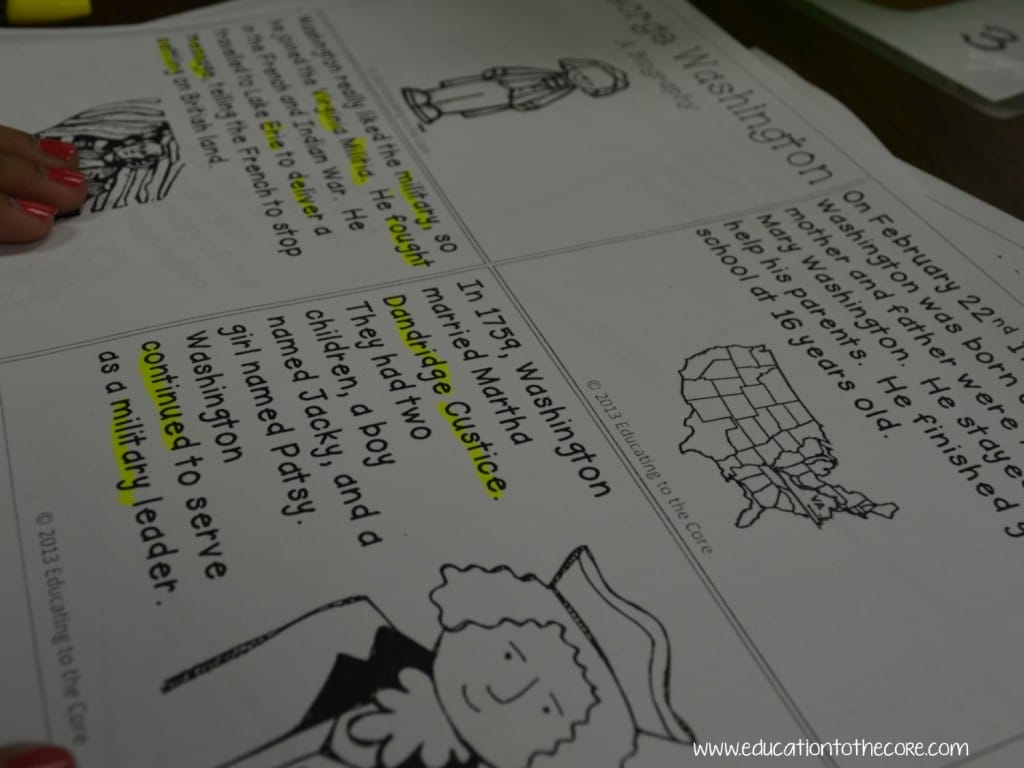 orge Washington
A Biography
On February 22nd 1
Washington was born
mother and father were
Mary Washington. He staye
help his parents. He finished
school at 16 years old.
© 2013 Educating to the Core
Washington really liked the military, so
he joined the Virginia Militia. He fought
in the French and Indian War. He
travelled to Lake Erie to deliver a
message, telling the French to stop
settling on British land.
In 1759, Washington
married Martha
Dandridge Custice.
They had two
children, a boy
named Jacky, and a
girl named Patsy.
Washington
continued to serve
as a military leader.
© 2013 Educating to the Core
3
www.educationtothecore.com